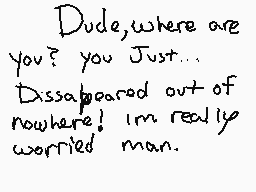 Dude, where are
you? you Just...
Dissapeared out of
nowhere! im really
worried man.